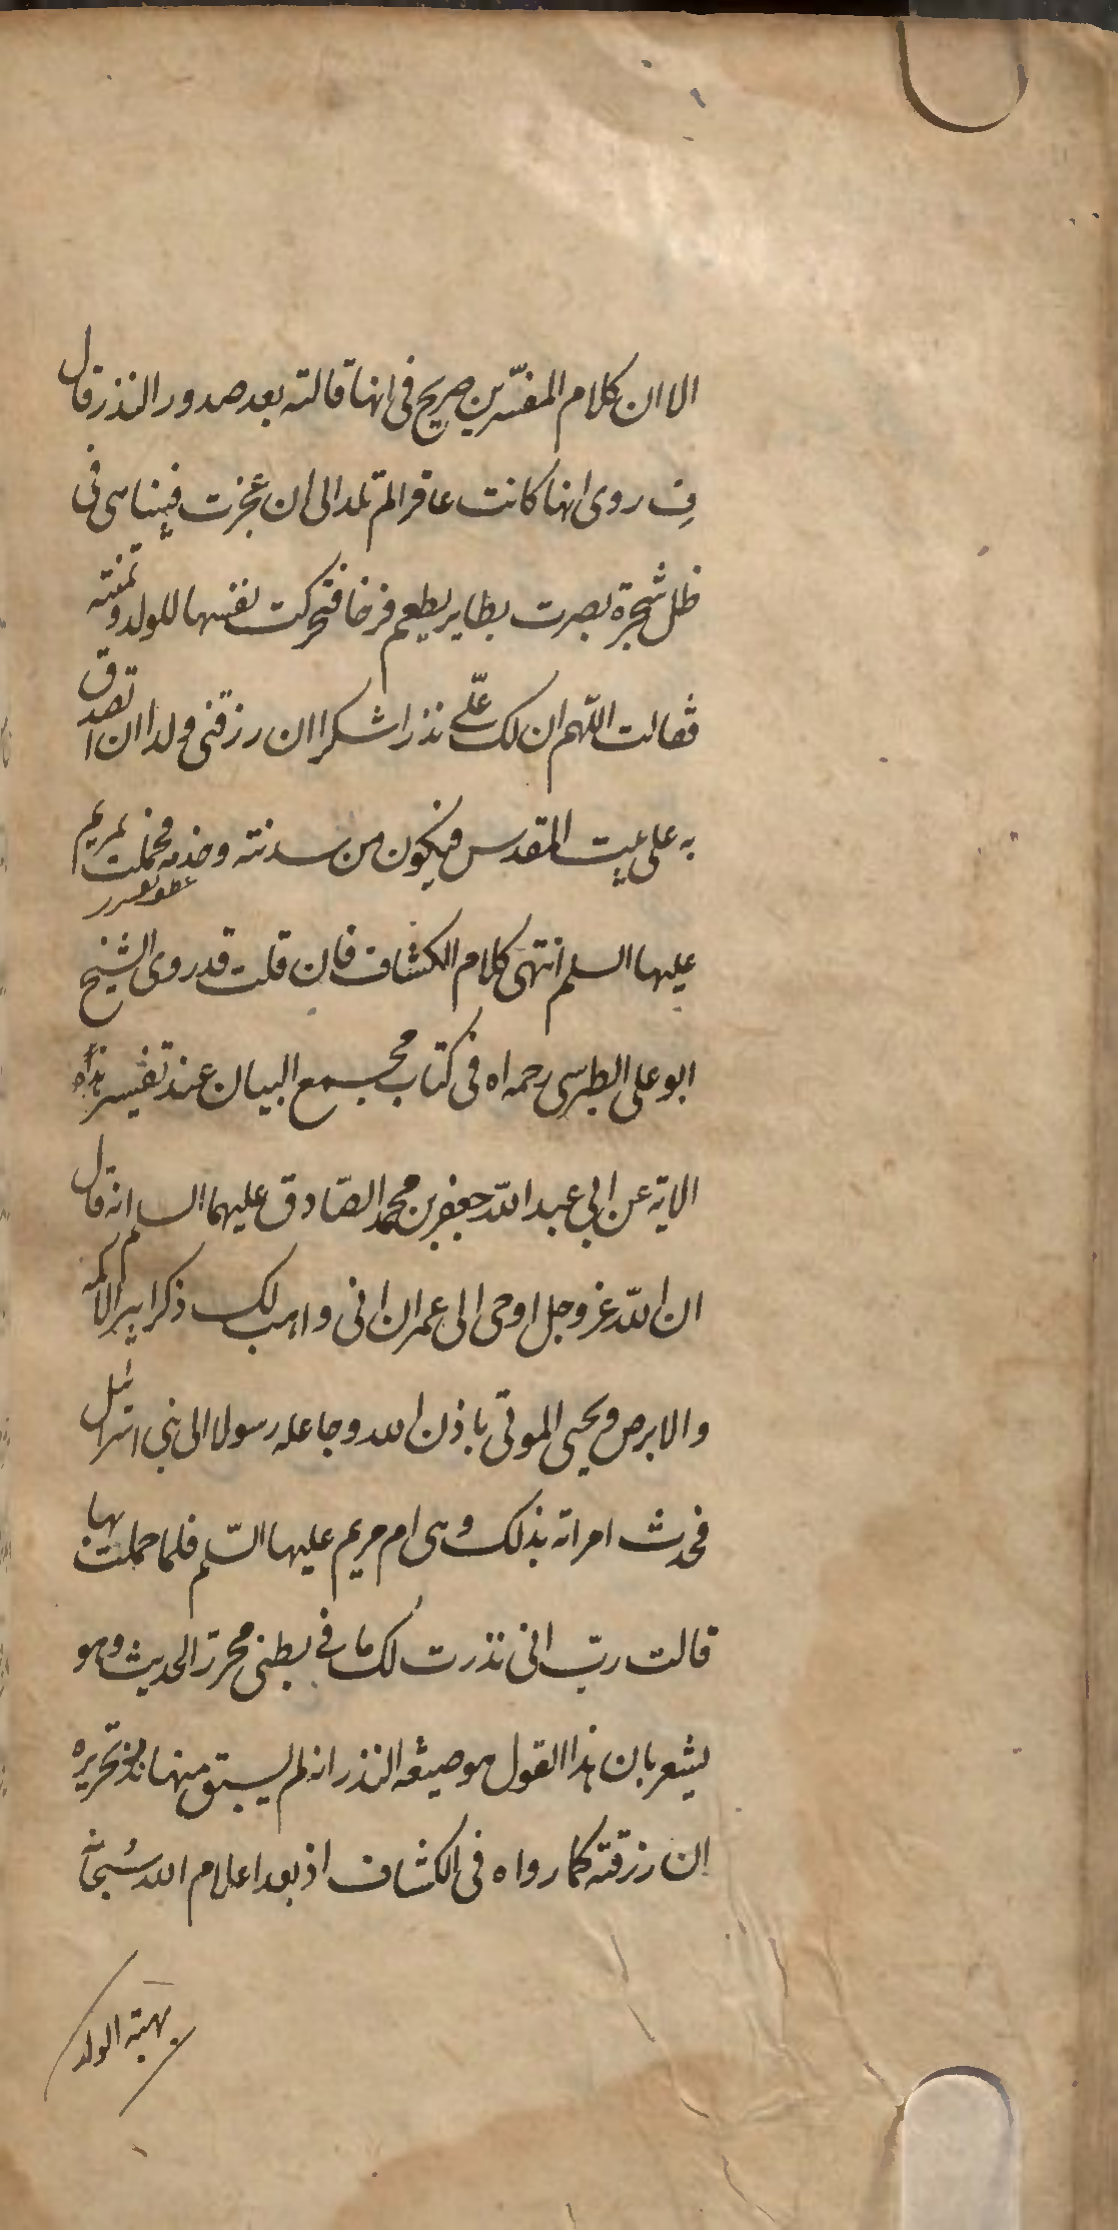 الا ان كلام المفسّرين صريح فى انها قالته بعد صدور النذر قال
فى روى انها كانت عاقرا لم تلد الى ان عجزت فبينا هى فى
ظل شجرة بصرت بطاير يطعم فرخا فتحركت نفسها للولد وتمنته
فقالت اللّهم ان لك علىّ نذرا شكرا ان رزقتنى ولدا ان اتصدق
به على بيت المقدس فيكون من سدنته وخدمه فحملت بمريم
عليها السلم انتهى كلام الكشاف فان قلت قد روى الشيخ
ابو على الطبرسى رحمه اه فى كتاب مجمع البيان عند تفسير هذه
الاية عن ابى عبد اللّه جعفر بن محمد الصّادق عليهما السلم انه قال
ان اللّه عز وجل اوحى الى عمران انى واهب لك ذكرا يبرا الاكمه
والابرص ويحيى الموتى باذن الله وجاعله رسولا الى بنى اسرائيل
فحدث امراته بذلك وهى ام مريم عليها السّلم فلما حملت بها
قالت ربّ انى نذرت لك ما فى بطنى محررا الحديث وهو
يشعر بان هذا القول هو صيغة النذر انه لم يسبق منها نذر تحريره
ان رزقته كما رواه فى الكشاف اذ بعد اعلام الله سُبحانه
بهبة الولد